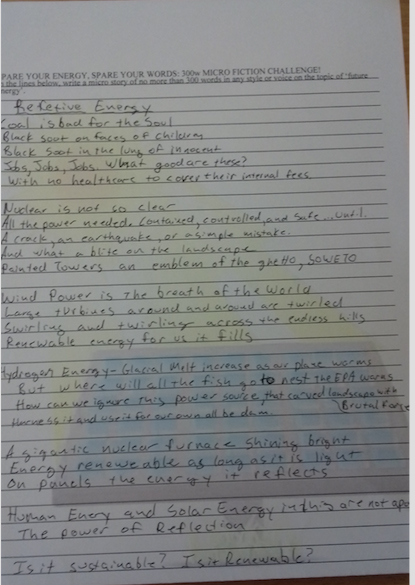 PARE YOUR ENERGY, SPARE YOUR WORDS: 300w MICRO FICTION CHALLENGE!
the lines below, write a micro story of no more than 300 words in any style or voice on the topic of 'future
nergy'.
Energy
Coal is bad for the Soul
Black soot on faces of children
Black Soot in the lung of inocent
Jobs, Jobs, Jobs. What good are these?
With no healthcare to cover their internal fees.
Nuclear is not so clear
All the power needed. Contained, controlled, and safe... until.
A crack, an earthquake, or a simple mistake.
And what a blite on the landscape
Painted Towers an emblem of the ghetto, SOWETO
Wind Power is The breath of the World
Large turbines around and around are twirled
Swirling and twirling across the endless hills
Renewable energy for us it fills
Hydrogen Energy - Glacial Melt increase as our plane worms
But where will all the fish go to nest the EPA warns
How can we ignore this power source, that carved landscape with
Brutal Force
Harness it and use it for our own all be dam
A gigantic nuclear furnace shining bright
Energy reneweable as long as it is light
On panels the energy it reflects
Human Enery and Solar Energy in this are not ape
The power of Reflection
Is it sustainable? Is it Renewable?